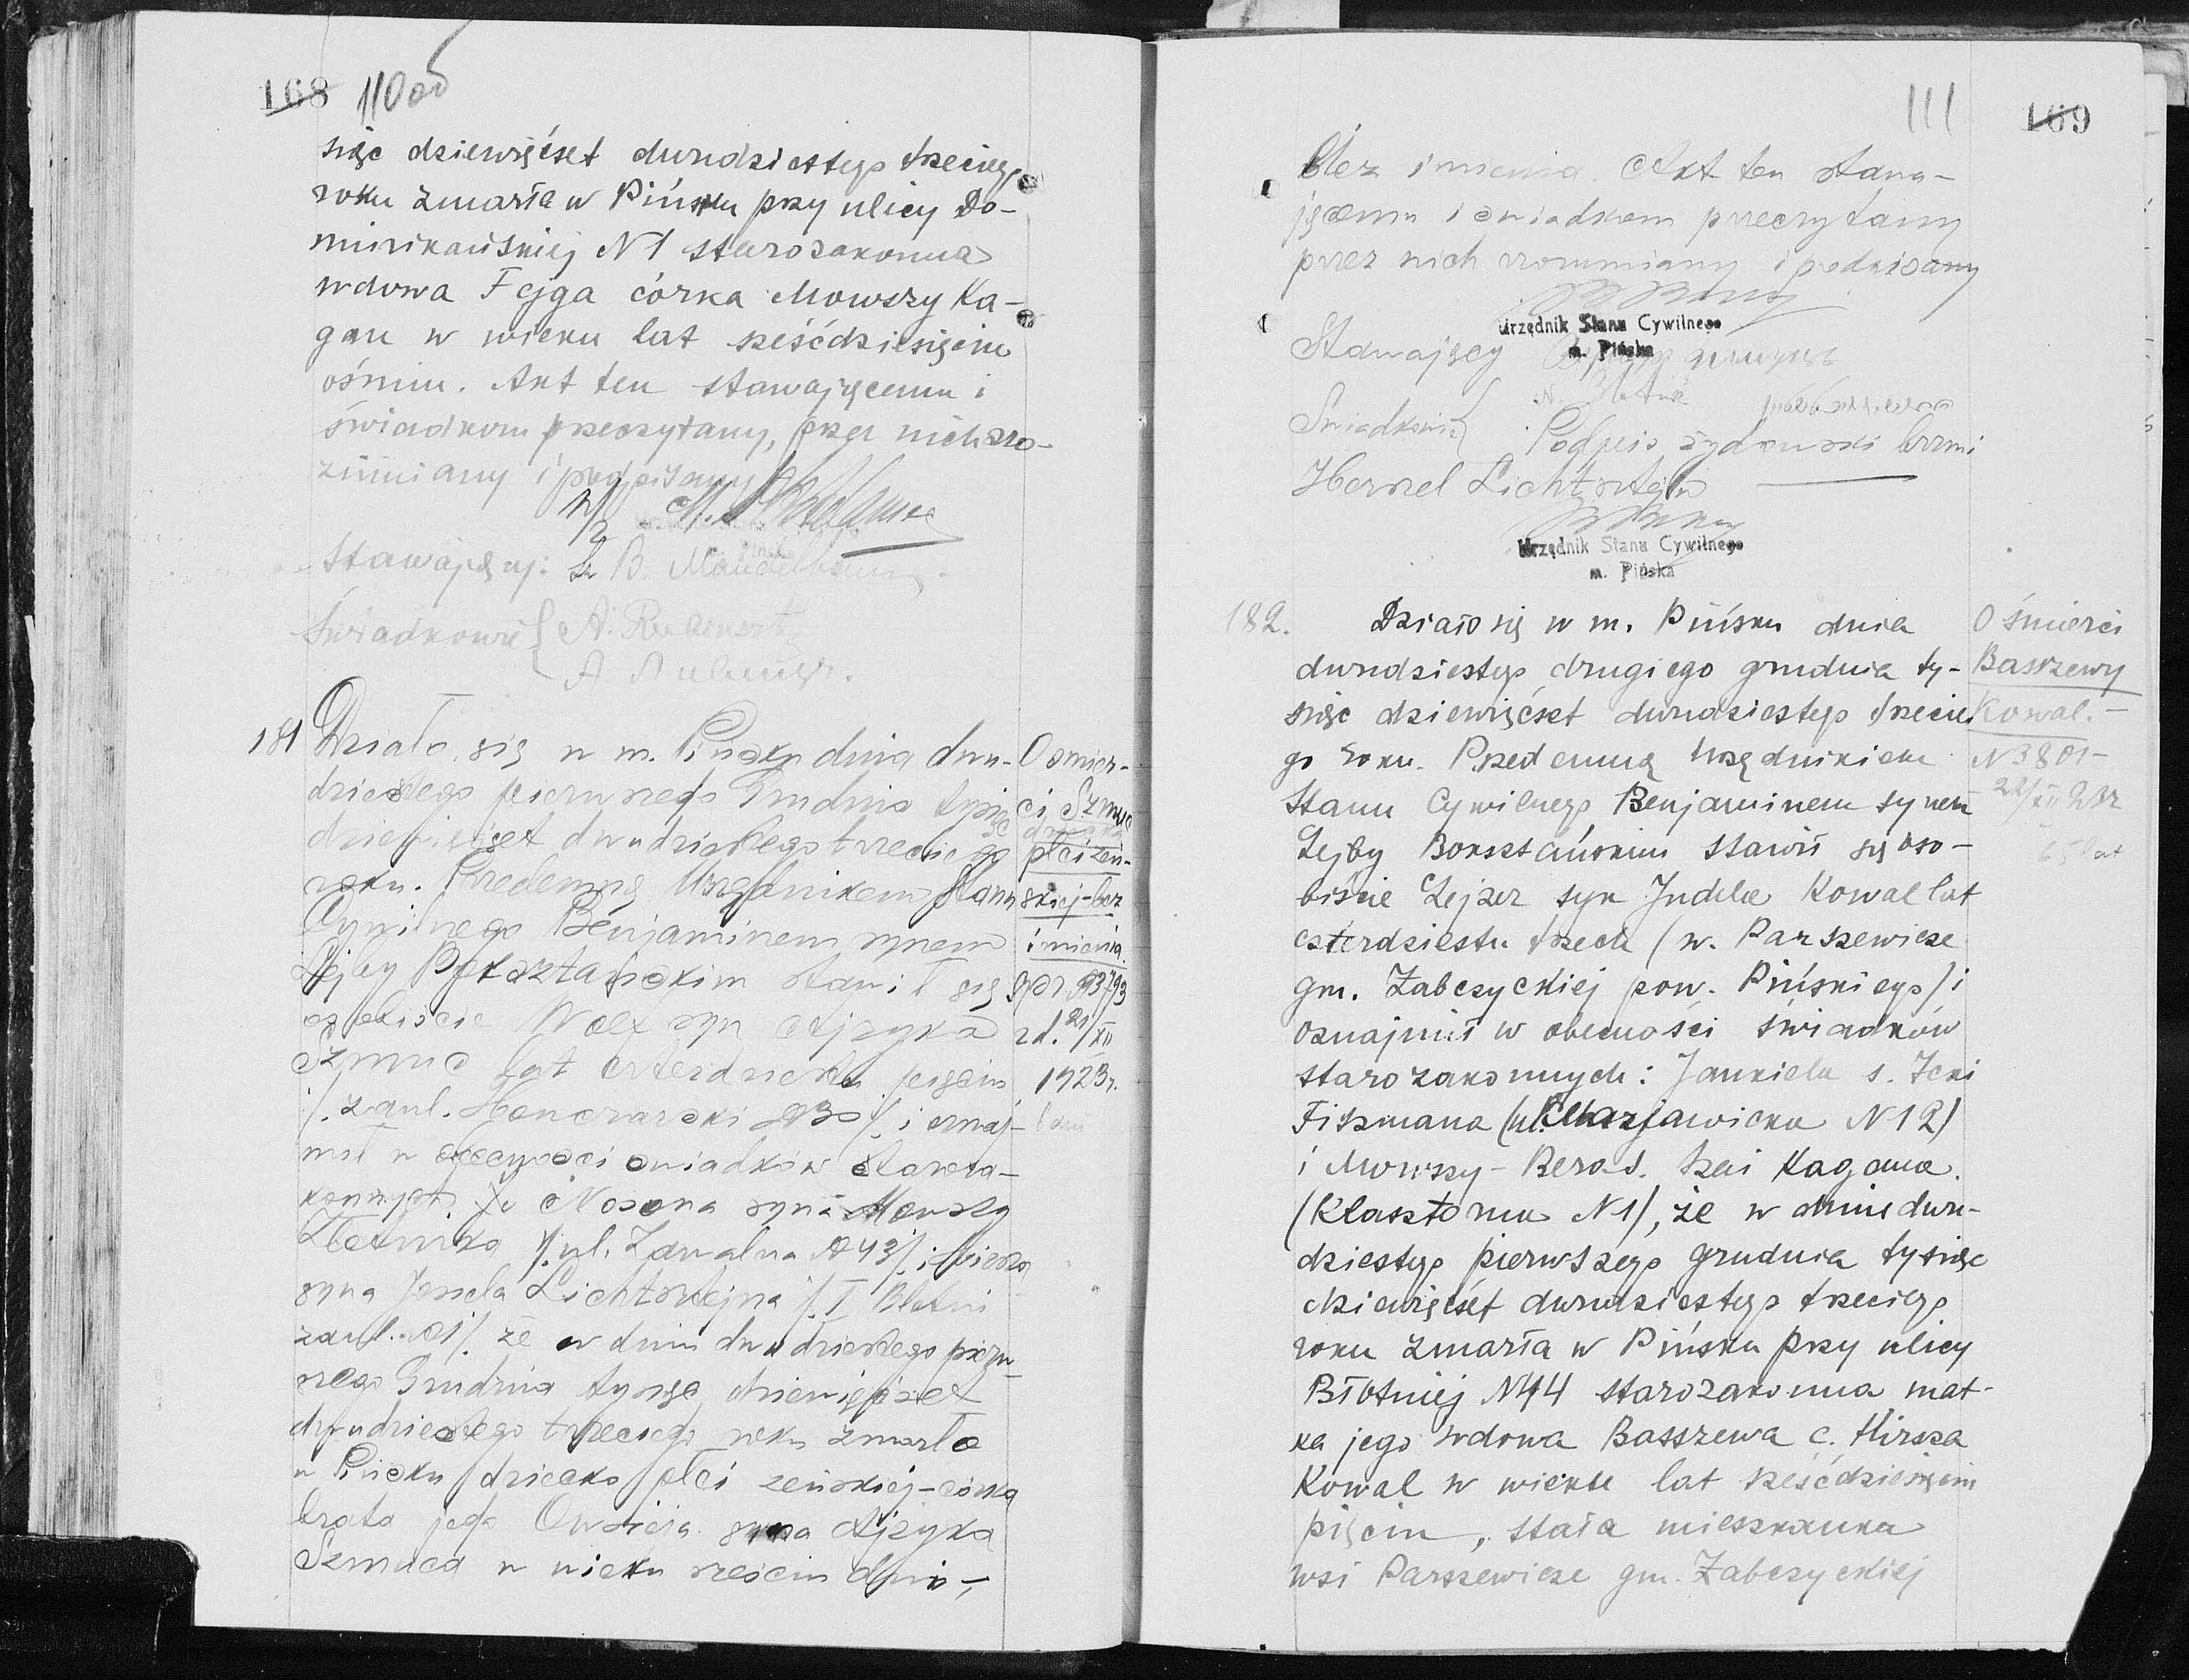 168 110 od
siąc dziewięćset dwudziestego trzeciego
roku zmarła w Pińsku przy ulicy Do-
minikańskiej N 1 starozakonna
wdowa Fejga córka Mowszy Ka-
gan w wieku lat sześćdziesięciu
ośmiu. Akt ten stawającemu i
świadkom przeczytany, przez nich zro-
zumiany i podpisany
Stawający: B. Mandelbaum
Świadkowie { A.
A.
181 Działo się w m. Pińsku dnia dwu-
dziestego pierwszego Grudnia tysiąc
dziewięćset dwudziestego trzeciego
roku. Przedemną Urzędnikem Stanu
Cywilnego Benjaminem synem
Lejby Boksztańskim stawił się
osobiście Wolf syn Ajzyka
Szmuc lat czterdziestu pięciu
/. zauł. Honczarski № 30 /. i oznaj-
mił w obecności świadków staroza-
konnych Nosona syna Mowszy
Zlotnika /. ul. Zawalna № 43 /. i Hersza
syna Josela Lichtsztejna /. I Błotni
zauł. № 1 /. że w dniu dwudziestego pierw-
szego Grudnia tysiąc dziewięćset
dwudziestego trzeciego roku zmarło
w Pińsku dziecko płci żeńskiej - córka
brata jego Owsieja syna Ajzyka
Szmuca w wieku sześciu dni -,
O śmier-
ci Szmuc
dziecka
płci żeń-
skiej - bez
imienia.
Spr. № 3793
z d. 21/XII
1923 r.
6 dni
111 169
bez imienia. Akt ten stawa-
jącemu i świadkom przeczytany
przez nich zrozumiany i podpisany
Urzędnik Stanu Cywilnego
m. Pińska
Stawający
Świadkowie {
Podpis żydowski brzmi
Herszel Lichtsztejn
Urzędnik Stanu Cywilnego
m. Pińska
182. Działo się w m. Pińsku dnia
dwudziestego drugiego grudnia ty-
siąc dziewięćset dwudziestego trzecie
go roku. Przedemną Urzędnikiem
Stanu Cywilnego Benjaminem synem
Lejby Boksztańskim stawił się oso-
biście Lejzer syn Judela Kowal lat
czterdziestu trzech (w. Parszewicze
gm. Żabczyckiej pow. Pińskiego) i
oznajmił w obecności świadków
starozakonnych: Jankiela s. Icki
Fiszmana (ul. Marjawicka N 12)
i Mowszy - Bera s. Szai Kagana.
(Klasztorna N 1), że w dniu dwu-
dziestego pierwszego grudnia tysiąc
dziewięćset dwudziestego trzeciego
roku zmarła w Pińsku przy ulicy
Błotniej N 44 starozakonna mat-
ka jego wdowa Basszewa c. Hirsza
Kowal w wieku lat sześćdziesięciu
pięciu, stała mieszkanka
wsi Parszewicze gm. Żabczyckiej
O śmierci
Basszewy
Kowal. -
N 3801 -
22/XII 23r
65 lat